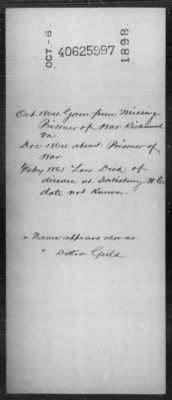 OCT.-6.
40625997
1898.
Oct. 1864 Gain from Missing
Prisoner of War Richmond
Va
Dec 1864 absent Prisoner of
War
Feby 1865 Loss Died of
disease at Salisbury N.C.
date not known.
Name appears also as